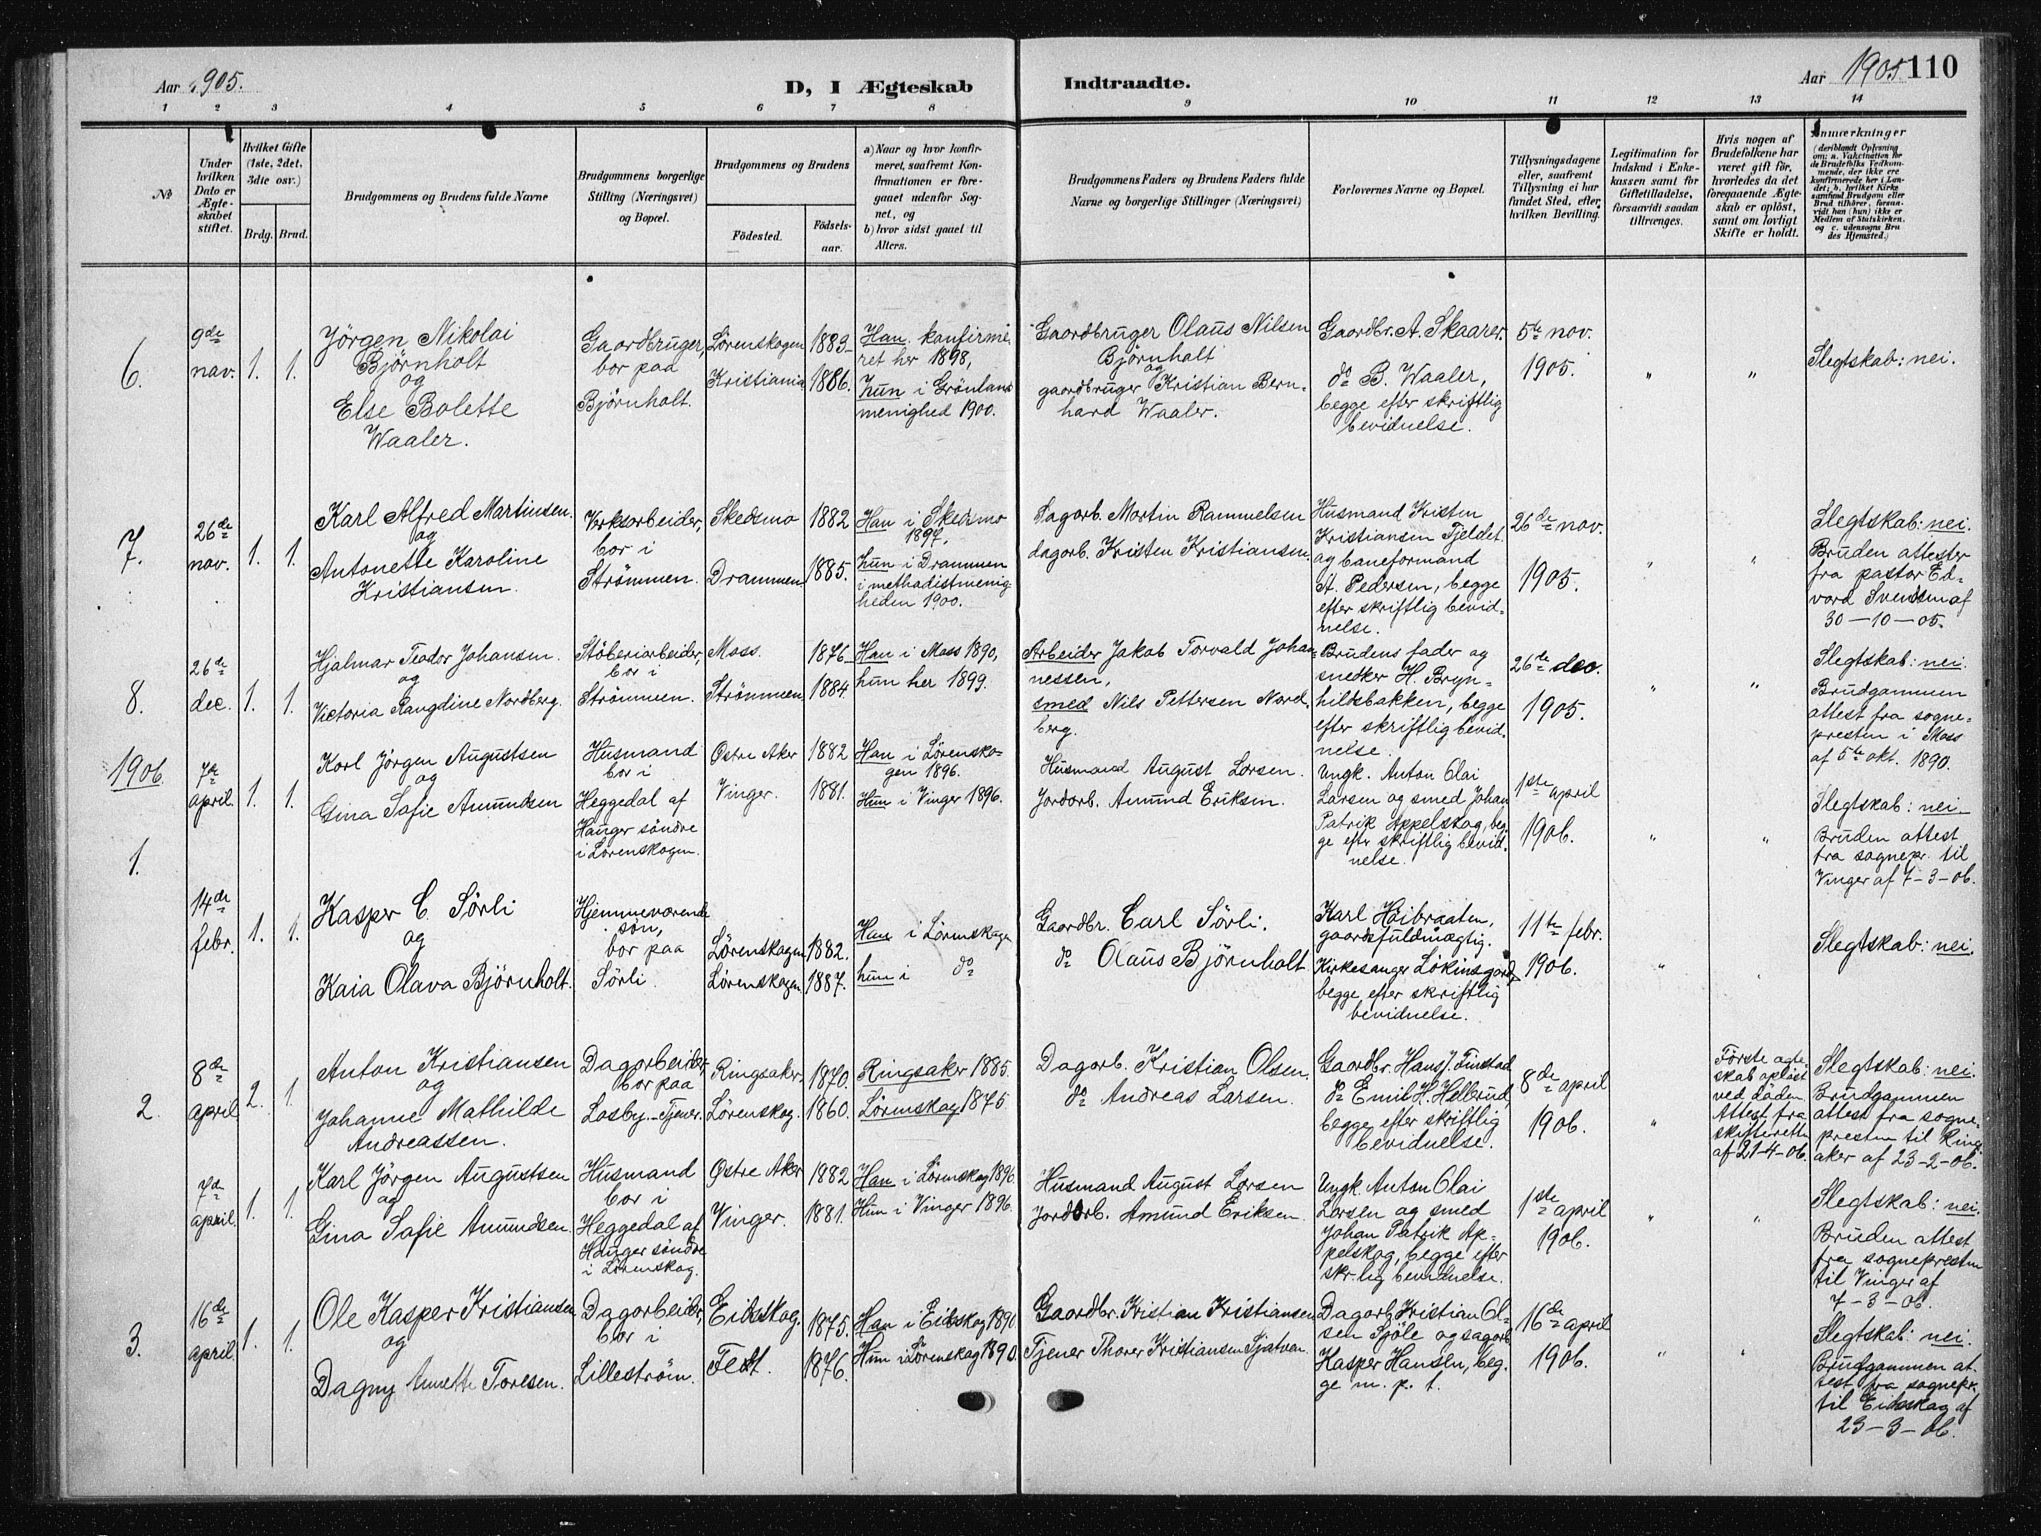 Aar 1905.
D, I Ægteskab
Indtraadte.
Aar 1905. 110
1 2 3 4 5 6 7 8 9 10 11 12 13 14
№
Under hvilken Dato er Ægteskabet stiftet.
Hvilket Gifte (1ste, 2det, 3die osv.)
Brdg. Brud.
Brudgommens og Brudens fulde Navne
Brudgommens borgerlige Stilling (Næringsvei) og Bopæl.
Brudgommens og Brudens
Fødested.
Fødselsaar.
a) Naar og hvor konfirmeret, saafremt Konfirmationen er foregaaet udenfor Sognet, og
b) hvor sidst gaaet til Alters.
Brudgommens Faders og Brudens Faders fulde Navne og borgerlige Stillinger (Næringsvei)
Forlovernes Navne og Bopæl.
Tillysningsdagene eller, saafremt Tillysning ei har fundet Sted, efter hvilken Bevilling.
Legitimation for Indskud i Enkekassen samt for Giftetilladelse, forsaavidt saadan tiltrænges.
Hvis nogen af Brudefolkene har været gift før, hvorledes da det foregaaende Ægteskab er opløst, samt om lovligt Skifte er holdt.
Anmærkninger (deriblandt Oplysning om: a. Vakcination for de Brudefolks Vedkommende, der ikke ere konfirmerede her i Landet; b. hvilket Kirkesamfund Brudgom eller Brud tilhører, forsaavidt han (hun) ikke er Medlem af Statskirken, og c. udensogns Brudes Hjemsted.)
6.
9de nov.
1. 1.
Jörgen Nikolai
Björnholt
og
Else Bolette
Waaler.
Gaardbruger,
bor paa
Björnholt.
Lörenskogen
Kristiania
1883
1886.
Han konfirme-
ret her 1898,
hun i Grönland
menighed 1900.
Gaardbruger Olaus Nilsen
Björnholt
og
gaardbruger Kristian Bern-
hard Waaler.
Gaardbr. A. Skaarer.
do B. Waaler,
begge efter skriftlig
bevidnelse.
5te nov.
1905.
" "
Slegtskab: nei.
7.
26de nov.
1. 1.
Karl Alfred Martinsen
og
Antonette Karoline
Kristiansen.
Verksarbeider,
bor i
Strömmen.
Skedsmo
Drammen
1882
1885.
Han i Skedsmo
1897,
hun i Drammen
i methodistmenig-
heden 1900.
Dagarb. Martin Rammelsen
dagarb. Kristen Kristiansen.
Husmand Kristen
Kristiansen Fjeldet
og baneformand
A. Pedersen, begge
efter skriftlig bevid-
nelse.
26de nov.
1905.
" "
Slegtskab: nei.
Bruden attester
fra pastor Ed-
vard Svendsen af
30-10-05.
8.
26de dec.
1. 1.
Hjalmar Teodor Johansen
og
Victoria Raugdine Nordberg.
Stöberiarbeider,
bor i
Strömmen.
Moss.
Strömmen
1876
1884
Han i Moss 1890,
hun her 1899.
Arbeider Jakob Torvald Johan-
nessen,
smed Nils Pettersen Nord-
berg.
Brudens fader og
snedker H. Bryn-
hildsbakken, begge
efter skriftlig bevid-
nelse.
26de dec.
1905.
" "
Slegtskab: nei.
Brudgammen
attest fra sogne-
presten i Moss
af 5te okt. 1890.
1906.
1.
7de april.
1. 1.
Karl Jörgen Augustsen
og
Gina Safie Amundsen
Husmand
bor i
Heggedal af
Hauger söndre
i Lörenskogen.
Ostre Aker
Vinger.
1882
1881.
Han i Lörensko-
gen 1896.
Hun i Vinger 1896.
Husmand August Larsen.
Jordarb. Amund Eriksen.
Ungk. Anton Olai
Larsen og smed Johan
Patrik Appelskog, beg-
ge efter skriftlig bevid-
nelse.
1ste april
1906.
" "
Slegtskab: nei
Bruden attest
fra sognepr. til
Vinger af 7-3-06.
14de febr.
1. 1.
Kasper C. Sörli
og
Kaia Olava Björnholt.
Hjemmeværende
sön,
bor paa
Sörli.
Lörenskogen
Lörenskogen
1882.
1887.
Han i Lörenskogen
hun i do
Gaardbr. Carl Sörli.
do Olaus Björnholt
Karl Haibraaten,
gaardsfuldmægtig.
Kirkesanger Lökinsgard,
begge efter skriftlig
bevidnelse.
11te febr.
1906.
"
Slegtskab: nei.
2.
8de april
2. 1.
Anton Kristiansen
og
Johanne Mathilde
Andreassen.
Dagarbeider,
bor paa
Losby. - Tjener.
Ringsaker.
Lörenskog.
1870.
1860.
Ringsaker 1885.
Lörenskog 1875.
Dagarb. Kristian Olsen.
do Andreas Larsen.
Gaardbr. Hans J. Finstad
do Emil H. Hellerud,
begge efter skriftlig
bevidnelse.
8de april
1906.
"
Förste egte
skab oplöst
ved Döden.
Attest fra
skifteretten
af 21-4-06.
Slegtskab: nei.
Brudgammen
attest fra sogne-
presten til Rings
aker af 23-2-06.
7de april.
1. 1.
Karl Jörgen Augustsen
og
Gina Safie Amundsen.
Husmand
bor i
Heggedal af
Hauger söndre
i Lörenskog.
Ostre Aker
Vinger.
1882
1881.
Han i Lörenskog 1896
Hun i Vinger 1896.
Husmand August Larsen
Jordarb. Amund Eriksen.
Ungk. Anton Olai
Larsen og smed
Johan Patrik Ap-
pelskog, begge efter
skr.lig bevidnelse.
1ste april
1906.
" "
Slegtskab: nei.
Bruden attest
fra sognepresten
til Vinger af
7-3-06.
3.
16de april.
1. 1.
Ole Kasper Kristiansen
og
Dagny Annette Toresen.
Dagarbeider,
bor i
Lilleström.
Eidskog.
Fedt.
1875.
1876.
Han i Eidskog 1890
Hun i Lörenskog 1890.
Gaardbr. Kristian Kristiansen
Tjener Thorer Kristiansen Sjatven
Dagarb. Kristian Ol-
sen Sjöle og sagarb.
Kasper Hansen, beg-
ge m. p. t.
16de april
1906.
" "
Slegtskab: nei.
Brudgammen at-
test fra sognepr.
til Eidskog af
23-3-06.